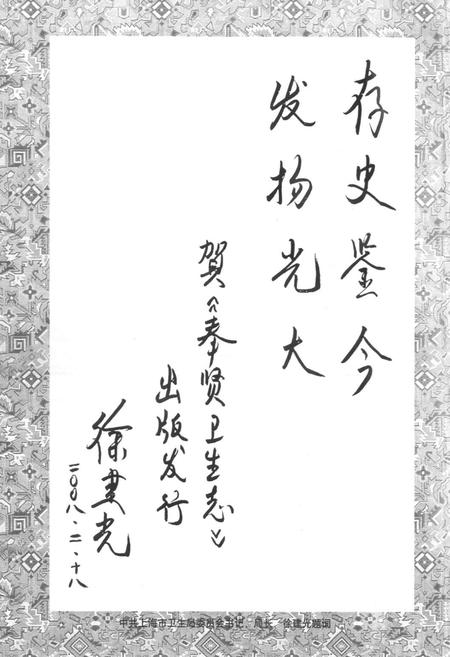 存史鉴今
发扬光大
贺《奉贤卫生志》
出版发行
徐建光
二〇〇八.二.十八
中共上海市卫生局委员会书记、局长 徐建光题词